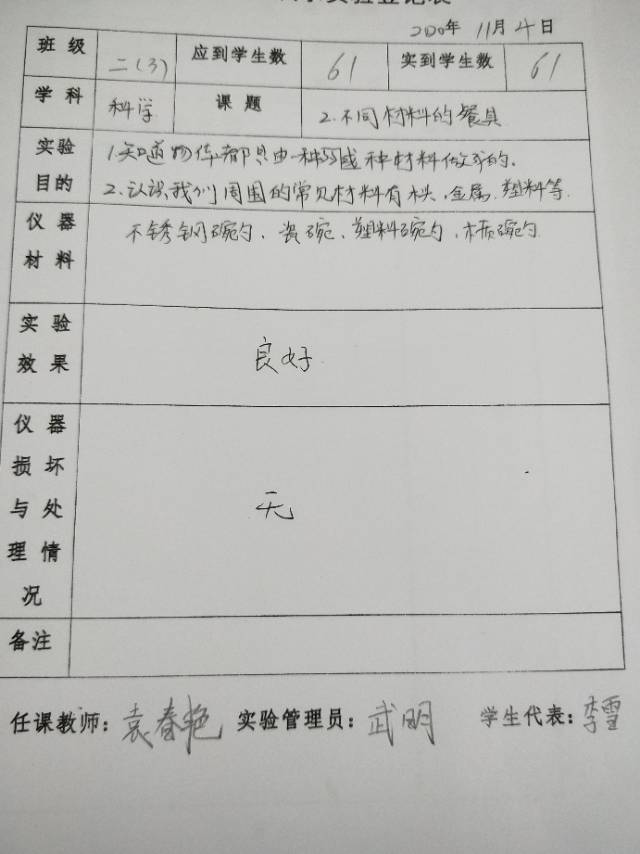 实验登记表
2020年 11月 4日
班级 二(3) 应到学生数 61 实到学生数 61
学科 科学 课题 2.不同材料的餐具
实验目的 1.知道物体都是由一种或多种材料做成的.
2.认识我们周围的常见材料有木头.金属.塑料等.
仪器材料 不锈钢碗勺、瓷碗、塑料碗勺、木质碗勺
实验效果 良好
仪器损坏与处理情况 无
备注
任课教师:袁春艳 实验管理员:武明 学生代表:李雪